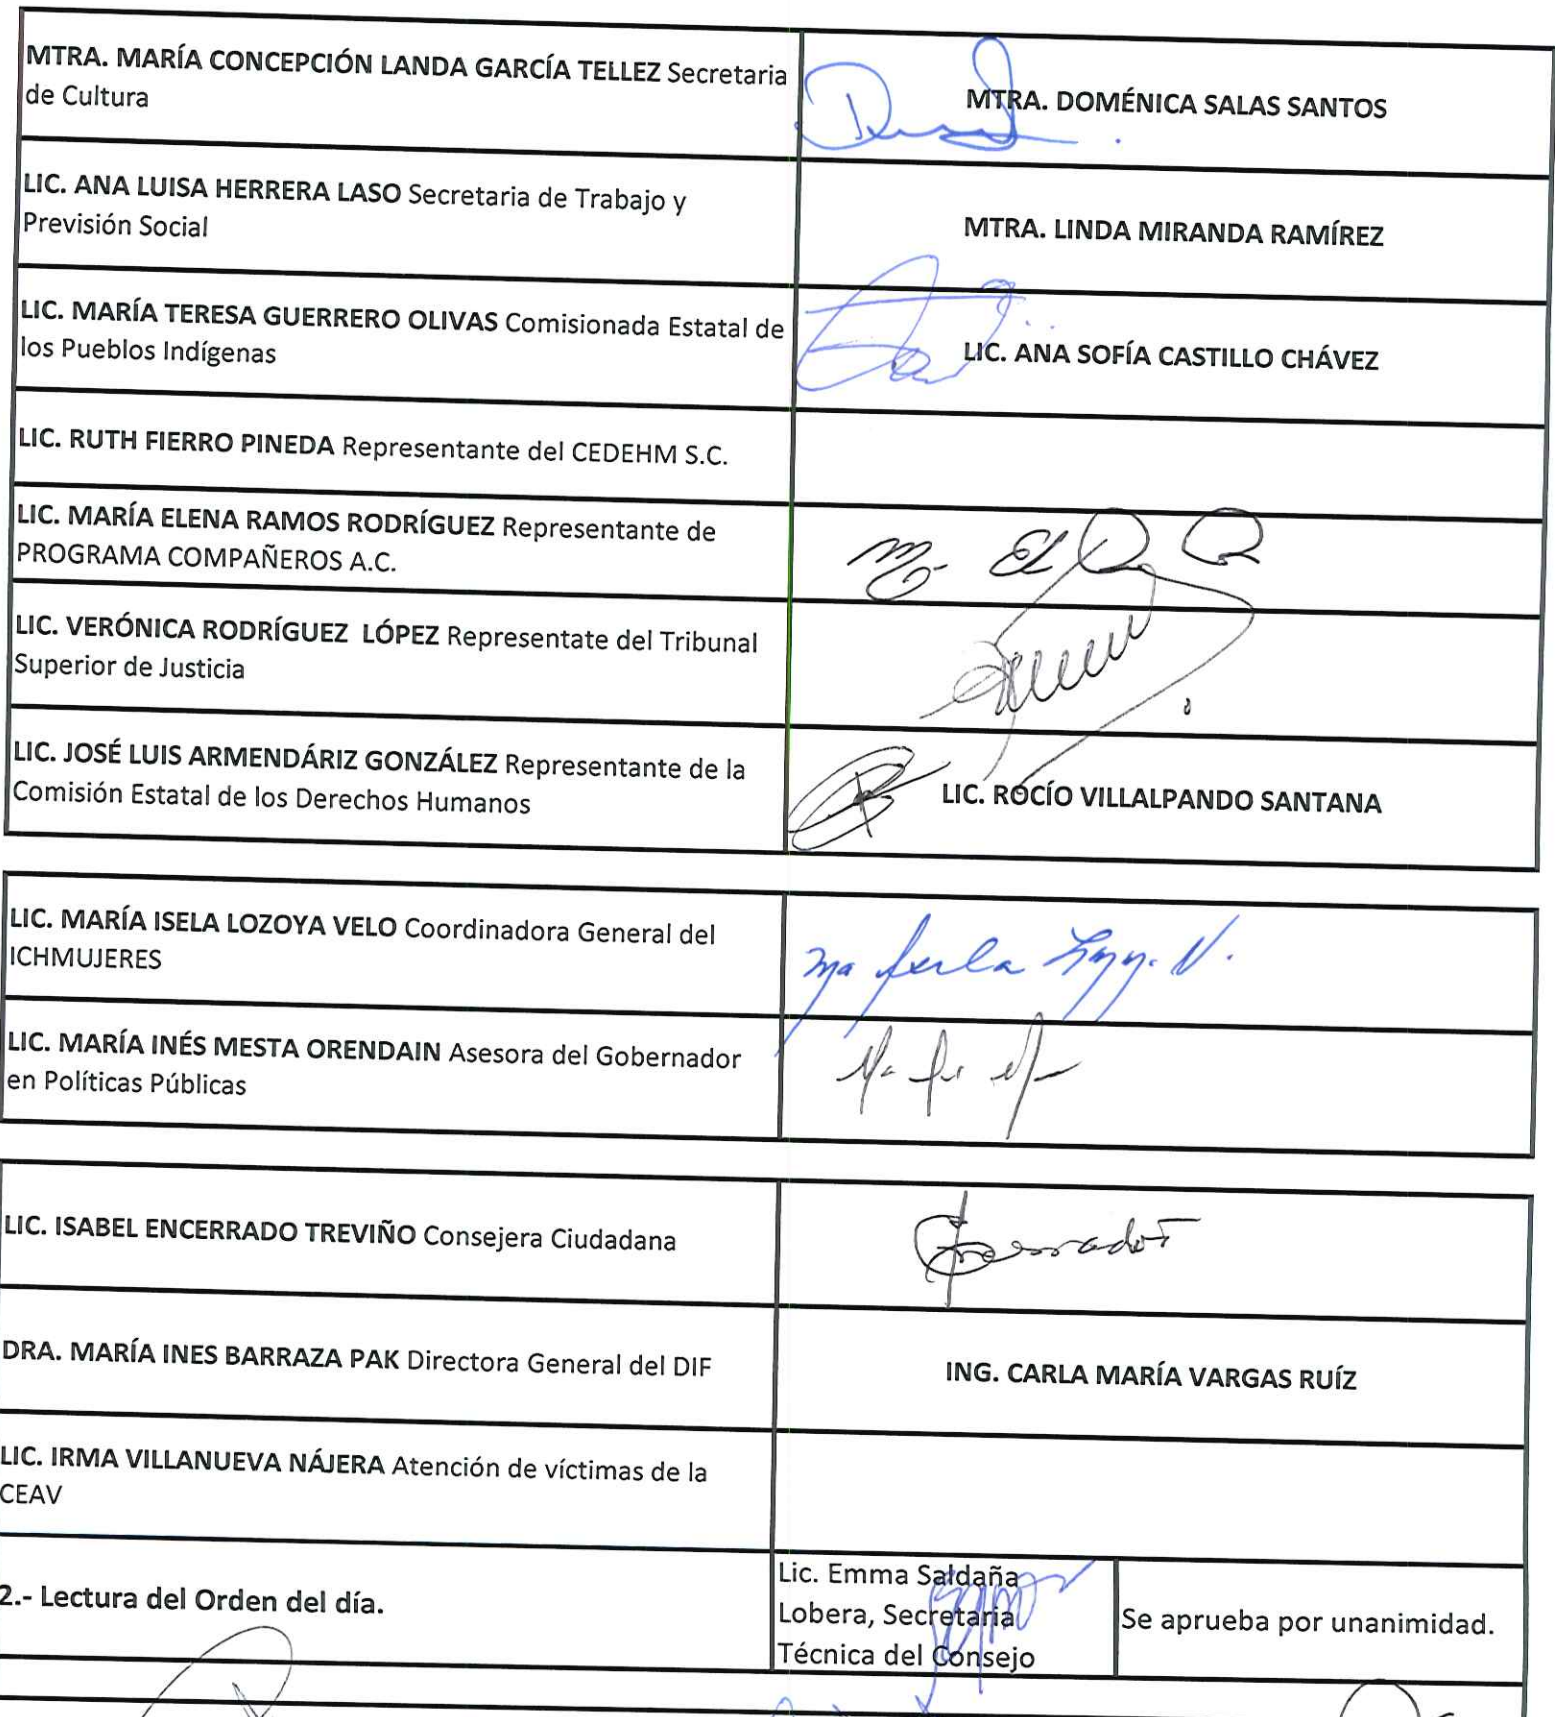 MTRA. MARÍA CONCEPCIÓN LANDA GARCÍA TELLEZ Secretaria
de Cultura
MTRA. DOMÉNICA SALAS SANTOS
LIC. ANA LUISA HERRERA LASO Secretaria de Trabajo y
Previsión Social
MTRA. LINDA MIRANDA RAMÍREZ
LIC. MARÍA TERESA GUERRERO OLIVAS Comisionada Estatal de
los Pueblos Indígenas
LIC. ANA SOFÍA CASTILLO CHÁVEZ
LIC. RUTH FIERRO PINEDA Representante del CEDEHM S.C.
LIC. MARÍA ELENA RAMOS RODRÍGUEZ Representante de
PROGRAMA COMPAÑEROS A.C.
LIC. VERÓNICA RODRÍGUEZ LÓPEZ Representate del Tribunal
Superior de Justicia
LIC. JOSÉ LUIS ARMENDÁRIZ GONZÁLEZ Representante de la
Comisión Estatal de los Derechos Humanos
LIC. ROCÍO VILLALPANDO SANTANA
LIC. MARÍA ISELA LOZOYA VELO Coordinadora General del
ICHMUJERES
LIC. MARÍA INÉS MESTA ORENDAIN Asesora del Gobernador
en Políticas Públicas
LIC. ISABEL ENCERRADO TREVIÑO Consejera Ciudadana
DRA. MARÍA INES BARRAZA PAK Directora General del DIF
ING. CARLA MARÍA VARGAS RUÍZ
LIC. IRMA VILLANUEVA NÁJERA Atención de víctimas de la
CEAV
2.- Lectura del Orden del día.
Lic. Emma Saldaña
Lobera, Secretaria
Técnica del Consejo
Se aprueba por unanimidad.